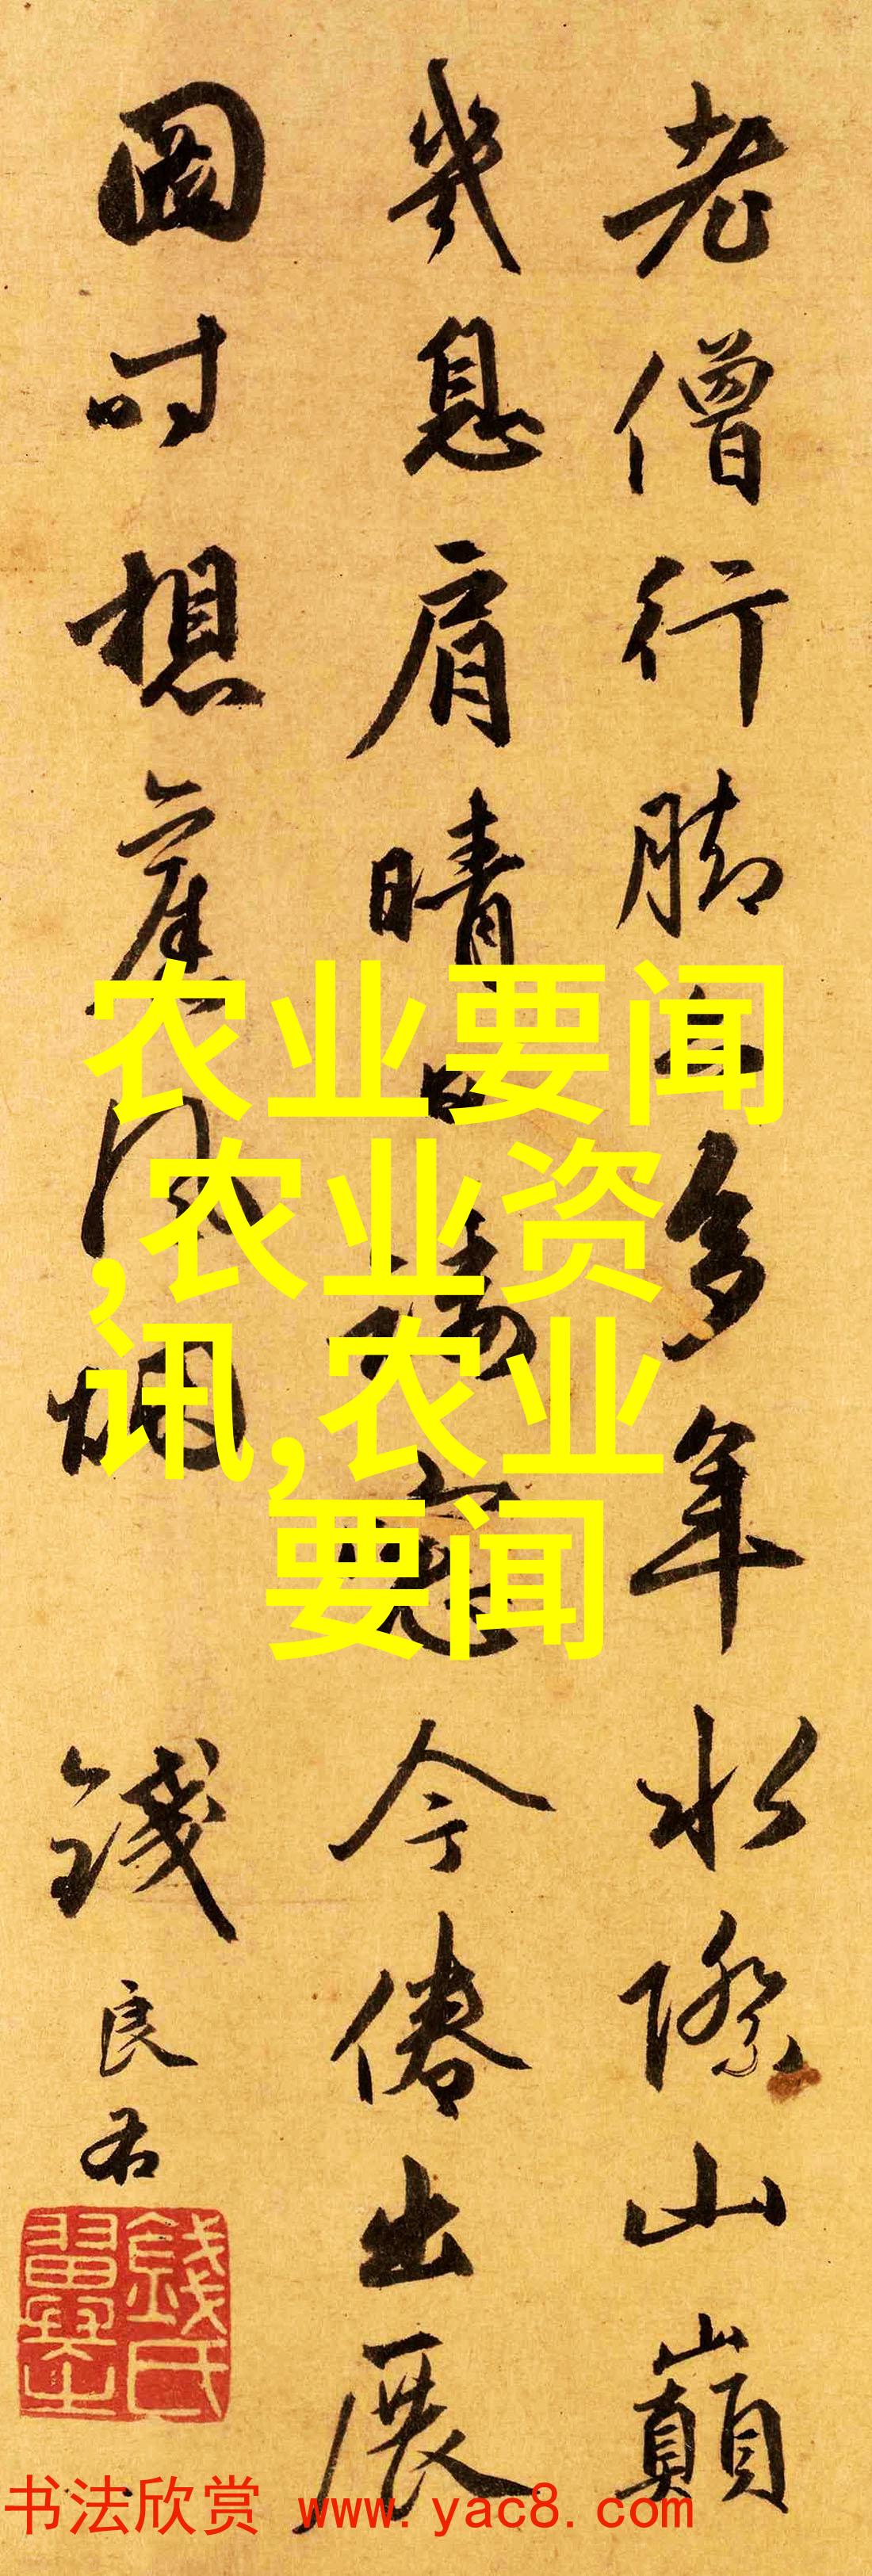 老僧行脚多年水際山巔
幾息肩晴窓今倦出展
圖時想舊風烟 錢良右
錢氏翼之
农业要闻
,农业资
讯,农业
要闻
书法欣赏 www.yac8.com